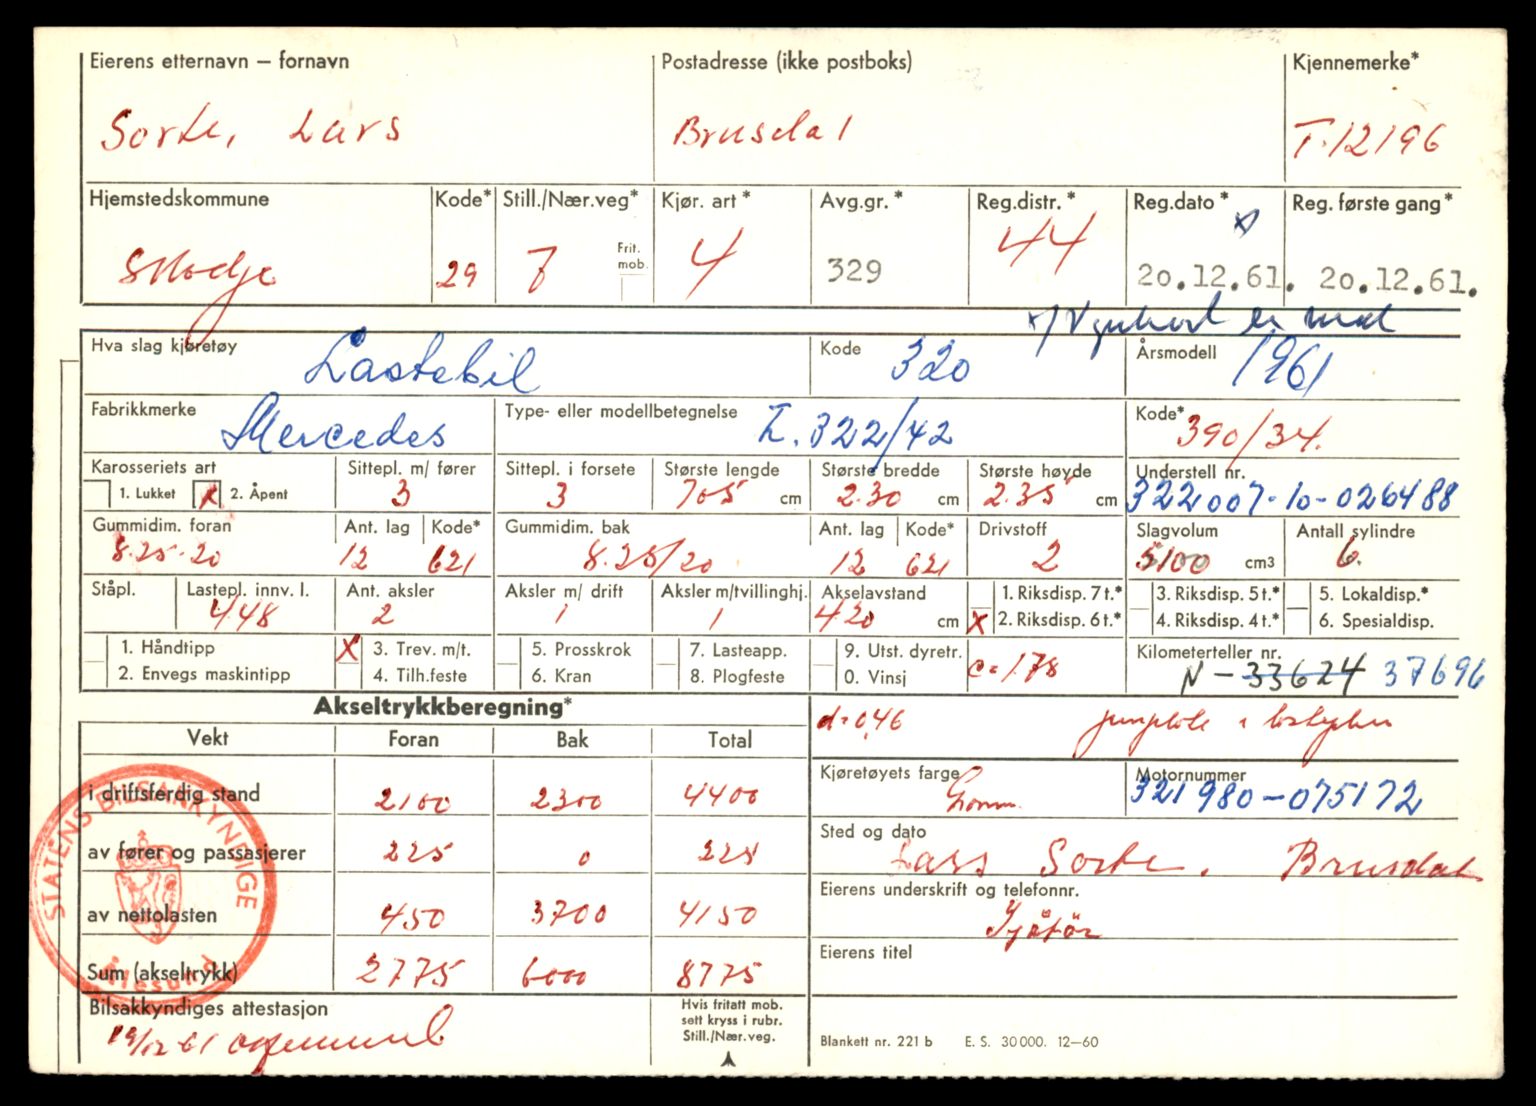 Eierens etternavn – fornavn Postadresse (ikke postboks) Kjennemerke*
Sorte, Lars Brusdal T-12196
Hjemstedskommune Kode* Still./Nær.veg* Kjør. art* Avg.gr.* Reg.distr.* Reg.dato* Reg. første gang*
Skodje 29 7 Frit. mob. 4 329 44 20.12.61. 20.12.61.
Hva slag kjøretøy Lastebil Kode 320 Årsmodell 1961
Fabrikkmerke Mercedes Type- eller modellbetegnelse L. 322/42 Kode* 390/34.
Karosseriets art Sittepl. m/ fører Sittepl. i forsete Største lengde Største bredde Største høyde Understell nr.
1. Lukket x 2. Åpent 3 3 705 cm 2.30 cm 2.35 cm 322007-10-026488
Gummidim. foran Ant. lag Kode* Gummidim. bak Ant. lag Kode* Drivstoff Slagvolum Antall sylindre
8.25-20 12 621 8.25/20 12 621 2 5100 cm3 6.
Ståpl. Lastepl. innv. l. Ant. aksler Aksler m/ drift Aksler m/tvillinghj. Akselavstand 1. Riksdisp. 7 t.* 3. Riksdisp. 5 t.* 5. Lokaldisp.*
448 2 1 1 420 cm x 2. Riksdisp. 6 t.* 4. Riksdisp. 4 t.* 6. Spesialdisp.
1. Håndtipp X 3. Trev. m/t. 5. Prosskrok 7. Lasteapp. 9. Utst. dyretr. Kilometerteller nr.
2. Envegs maskintipp 4. Tilh.feste 6. Kran 8. Plogfeste 0. Vinsj c=178 N-33624 37696
Akseltrykkberegning* d=0,46
Vekt Foran Bak Total
Kjøretøyets farge Motornummer
i driftsferdig stand 2100 2300 4400 321980-075172
Sted og dato
av fører og passasjerer 225 0 225 Lars Sorte, Brusdal
Eierens underskrift og telefonnr.
av nettolasten 450 3700 4150 Sjåfør
Eierens titel
Sum (akseltrykk) 2775 6000 8775
STATENS BILSAKKYNDIGE
Ålesund
Bilsakkyndiges attestasjon Hvis fritatt mob.
sett kryss i rubr.
Still./Nær.veg.
19/12 61
Blankett nr. 221 b E. S. 30 000. 12–60